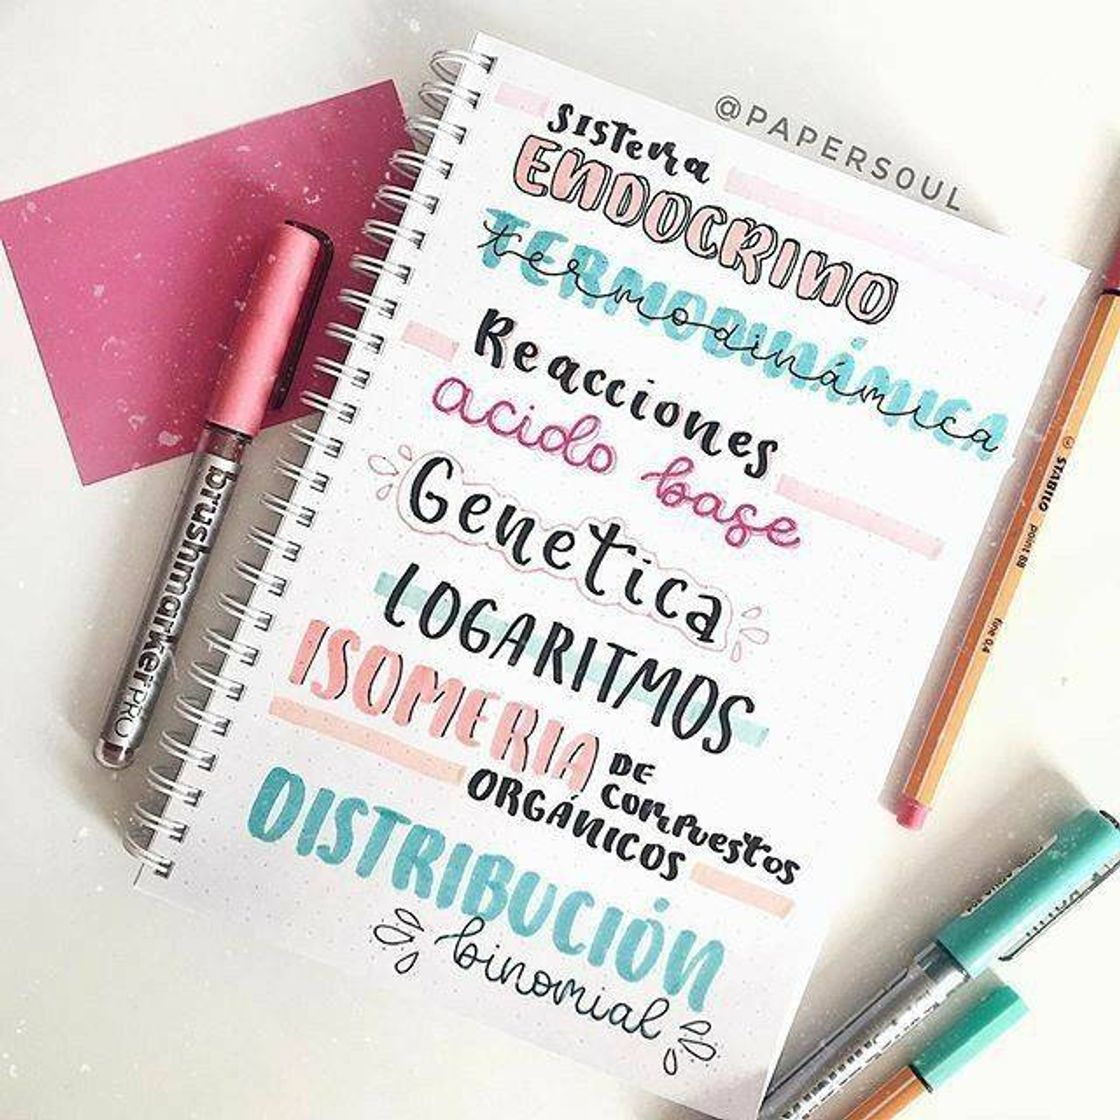 @PAPERS0UL
Sistema
ENDOCRINO
TERMODINÁMICA
termodinámica
Reacciones
acido base
Genetica
LOGARITMOS
ISOMERIA DE
compuestos
ORGÁNICOS
DISTRIBUCIÓN
binomial
brushmarkerPRO
STABILO point 88 fine 0,4